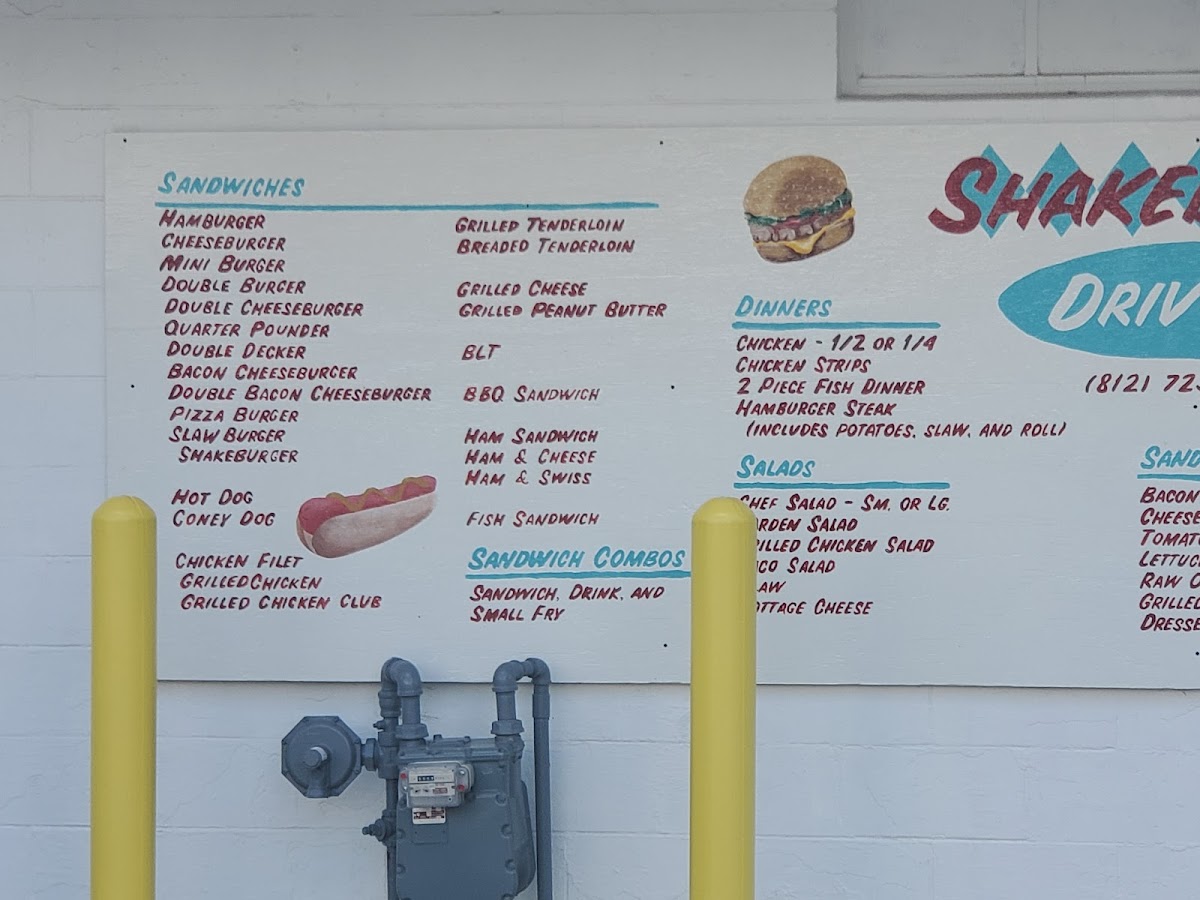 SANDWICHES
HAMBURGER
CHEESEBURGER
MINI BURGER
DOUBLE BURGER
DOUBLE CHEESEBURGER
QUARTER POUNDER
DOUBLE DECKER
BACON CHEESEBURGER
DOUBLE BACON CHEESEBURGER
PIZZA BURGER
SLAW BURGER
SHAKEBURGER
HOT DOG
CONEY DOG
CHICKEN FILET
GRILLED CHICKEN
GRILLED CHICKEN CLUB
GRILLED TENDERLOIN
BREADED TENDERLOIN
GRILLED CHEESE
GRILLED PEANUT BUTTER
BLT
BBQ SANDWICH
HAM SANDWICH
HAM & CHEESE
HAM & SWISS
FISH SANDWICH
SANDWICH COMBOS
SANDWICH, DRINK, AND
SMALL FRY
DINNERS
CHICKEN - 1/2 OR 1/4
CHICKEN STRIPS
2 PIECE FISH DINNER
HAMBURGER STEAK
(INCLUDES POTATOES, SLAW, AND ROLL)
SALADS
CHEF SALAD - SM. OR LG.
ARDEN SALAD
RILLED CHICKEN SALAD
CO SALAD
AW
OTTAGE CHEESE
SHAKE
DRIV
(812) 72
SAND
BACON
CHEESE
TOMATO
LETTUC
RAW O
GRILLED
DRESSE